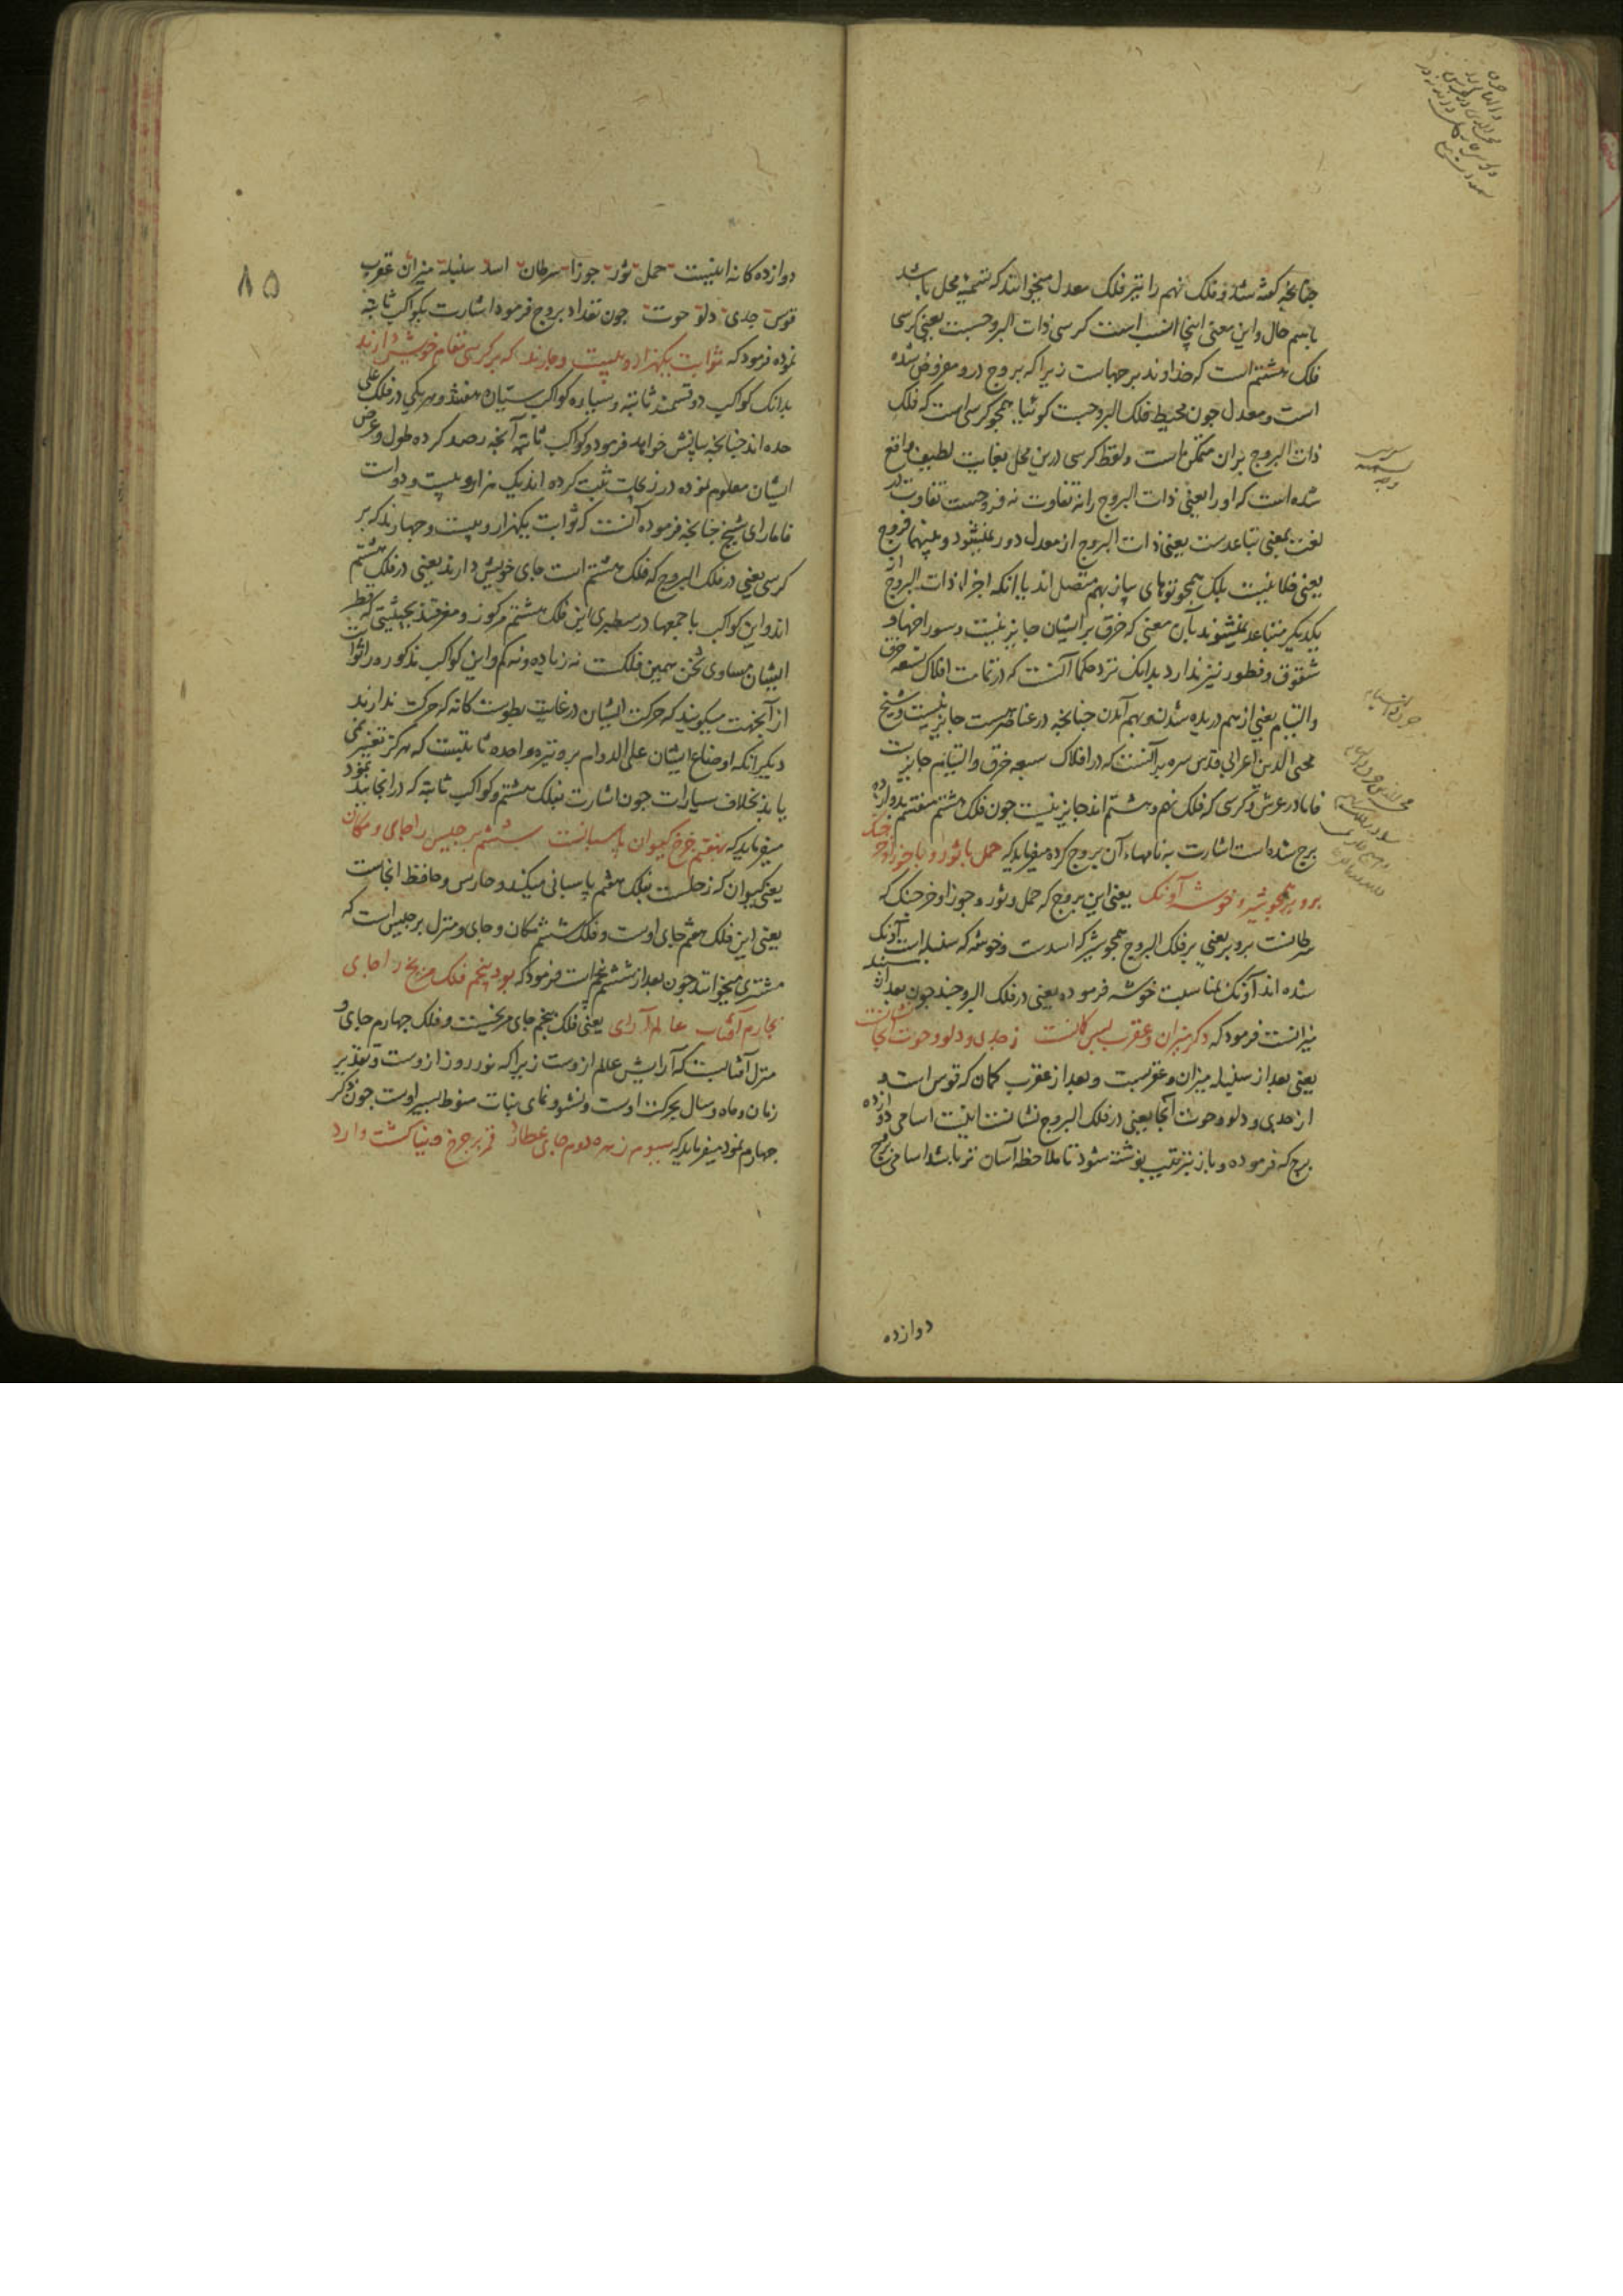 چنانچه گفته شد و فلک نهم را نیز فلک معدل میخوانند که تسمیه محل باشد
باسم حال و این معنی اینجا انسب است کرسی ذات البروجست یعنی کرسی
فلک هشتم است که خداوند برجهاست زیرا که بروج درو مفروض شده
است و معدل چون محیط فلک البروجست گوئیا همچو کرسی است که فلک
ذات البروج بران متمکن است و لفظ کرسی درین محل بغایت لطیف واقع
شده است که او را یعنی ذات البروج را نه تفاوت نه فروجست تفاوت در
لغت بمعنی تباعدست یعنی ذات البروج از معدل دور نمیشود و بینهما فروج
یعنی خلا نیست بلک همچو توهای پیاز بهم متصل اند یا انکه اجزاء ذات البروج از
یکدیگر متباعد نمیشوند بآن معنی که خرق بر ایشان جایز نیست و سوراخها و
شقوق و فطور نیز ندارد بدانک نزد حکما آنست که در تمامت افلاک تسعه خرق
و التیام یعنی از هم دریده شدن و بهم آمدن چنانچه در عناصرست جایز نیست و شیخ
محیی الدین اعرابی قدس سره برآنست که در افلاک سبعه خرق و التیام جایزست
فاما در عرش و کرسی که فلک نهم و هشتم اند جایز نیست چون فلک هشتم منقسم بدوازده
برج شده است اشارت به نامهاء آن بروج کرده میفرماید که حمل با ثور و با جوزا و خرچنگ
برو بر همچو شیر و خوشه آونک یعنی این بروج که حمل و ثور و جوزا و خرچنگ که
سرطانست برو بر یعنی بر فلک البروج همچو شیر که اسدست و خوشه که سنبله است آونک
شده اند آونک بمناسبت خوشه فرموده یعنی در فلک البروجند چون بعد از سنبله
میزانست فرمود که دگر میزان و عقرب پس کمانست ز جدی و دلو و حوت آنجا نشانست
یعنی بعد از سنبله میزان و عقربست و بعد از عقرب کمان که قوس است و
از جدی و دلو و حوت آنجا یعنی در فلک البروج نشانست اینست اسامی دوازده
برج که فرموده و باز بترتیب نوشته شود تا ملاحظه آسان تر باشد اسامی بروج
دوازده
۸۵
دوازده کانه اینست حمل ثور جوزا سرطان اسد سنبله میزان عقرب
قوس جدی دلو حوت چون تعداد بروج فرمود اشارت بکواکب ثابته
نموده فرمود که ثوابت یکهزار و بیست و چارند که بر کرسی مقام خویش دارند
بدانک کواکب دو قسمند ثابته و سیاره کواکب سیاره هفتند و هر یکی در فلک علی
حده اند چنانچه بیانش خواهد فرمود و کواکب ثابته آنچه رصد کرده طول و عرض
ایشان معلوم نموده در زیجات ثبت کرده اند یک هزار و بیست و دو است
فاما رای شیخ چنانچه فرموده آنست که ثوابت یکهزار و بیست و چهارند که بر
کرسی یعنی در فلک البروج که فلک هشتم است جای خویش دارند یعنی در فلک هشتم
اند و این کواکب باجمعها در سطبری این فلک هشتم مرکوز و مغرقند بحیثیتی که قطر
ایشان مساوی ثخن همین فلکست نه زیاده و نه کم و این کواکب مذکوره را ثوابت
از آنجهت میگویند که حرکت ایشان در غایت بطوست کانه که حرکت ندارند
دیگر انکه اوضاع ایشان علی الدوام بر وتیره واحده ثابتست که هرگز تغییر نمی
یابد بخلاف سیارات چون اشارت بفلک هشتم و کواکب ثابته که در آنجایند نمود
میفرماید که بهفتم چرخ کیوان پاسبانست ششم برجیس را جای و مکان
یعنی کیوان که زحلست بفلک هفتم پاسبانی میکند و حارس و حافظ آنجاست
یعنی این فلک هفتم جای اوست و فلک ششم مکان و جای و منزل برجیس است که
مشتری میخوانند چون بعد از ششم پنجم است فرمود که بود پنجم فلک مریخ را جای
بچارم آفتاب عالم آرای یعنی فلک پنجم جای مریخست و فلک چهارم جای و
منزل آفتابست که آرایش عالم ازوست زیرا که نور روز ازوست و تقدیر
زمان و ماه و سال بحرکت اوست و نشو و نمای نبات منوط بسیر اوست چون ذکر
چهارم نمود میفرماید که سیوم زهره دوم جای عطارد قمر بر چرخ دنیا گشت وارد